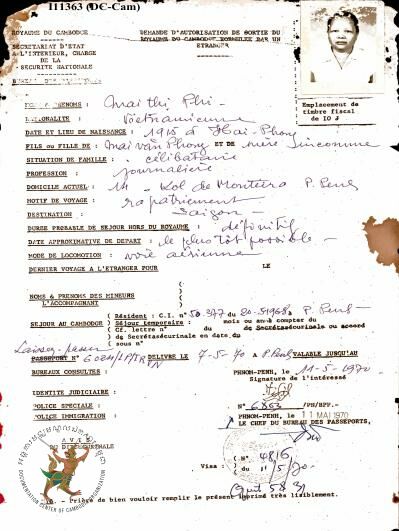 I11363 (DC-Cam)
ROYAUME DU CAMBODGE
SECRETARIAT D'ETAT
A L'INTERIEUR, CHARGE
DE LA
SECURITE NATIONALE
DEMANDE D'AUTORISATION DE SORTIE DU
ROYAUME DU CAMBODGE FORMULEE PAR UN
ETRANGER
Emplacement de
timbre fiscal
de 10 J
PRENOMS : Mai thi Phi
NATIONALITE : Vietnamienne
DATE ET LIEU DE NAISSANCE : 1915 à Hai-Phong
FILS ou FILLE DE : Mai van Phong ET DE mère inconnue
SITUATION DE FAMILLE : célibataire
PROFESSION : journalière
DOMICILE ACTUEL : 14 Kol de Monteiro P. Penh
MOTIF DE VOYAGE : rapatriement
DESTINATION : Saigon
DUREE PROBABLE DE SEJOUR HORS DU ROYAUME : définitif
DATE APPROXIMATIVE DE DEPART : le plus tôt possible
MODE DE LOCOMOTION : voie aérienne
DERNIER VOYAGE A L'ETRANGER POUR LE
NOMS & PRENOMS DES MINEURS
L'ACCOMPAGNANT
SEJOUR AU CAMBODGE
( Résident : C.I. n° 50.377 du P. Penh
( Séjour temporaire : mois ou an à compter du
( Cf. lettre n° du de Secrétasécurinale ou accord
( de Secrétasécurinale en date du
( sous n°
Laissez-passer
PASSEPORT N° DELIVRE LE 7-5-70 à P. Penh VALABLE JUSQU'AU
BUREAUX CONSULTES : PHNOM-PENH, le 11-5-1970
Signature de l'intéressé
IDENTITE JUDICIAIRE :
POLICE SPECIALE :
POLICE IMMIGRATION :
N° 6863 /PN/BPF.-
PHNOM-PENH, 11 MAI 1970
LE CHEF DU BUREAU DES PASSEPORTS,
AVIS
Visa : ( N° 4816
( du
DOCUMENTATION CENTER OF CAMBODIA ORGANIZATION
Prière de bien vouloir remplir le présent imprimé très lisiblement.